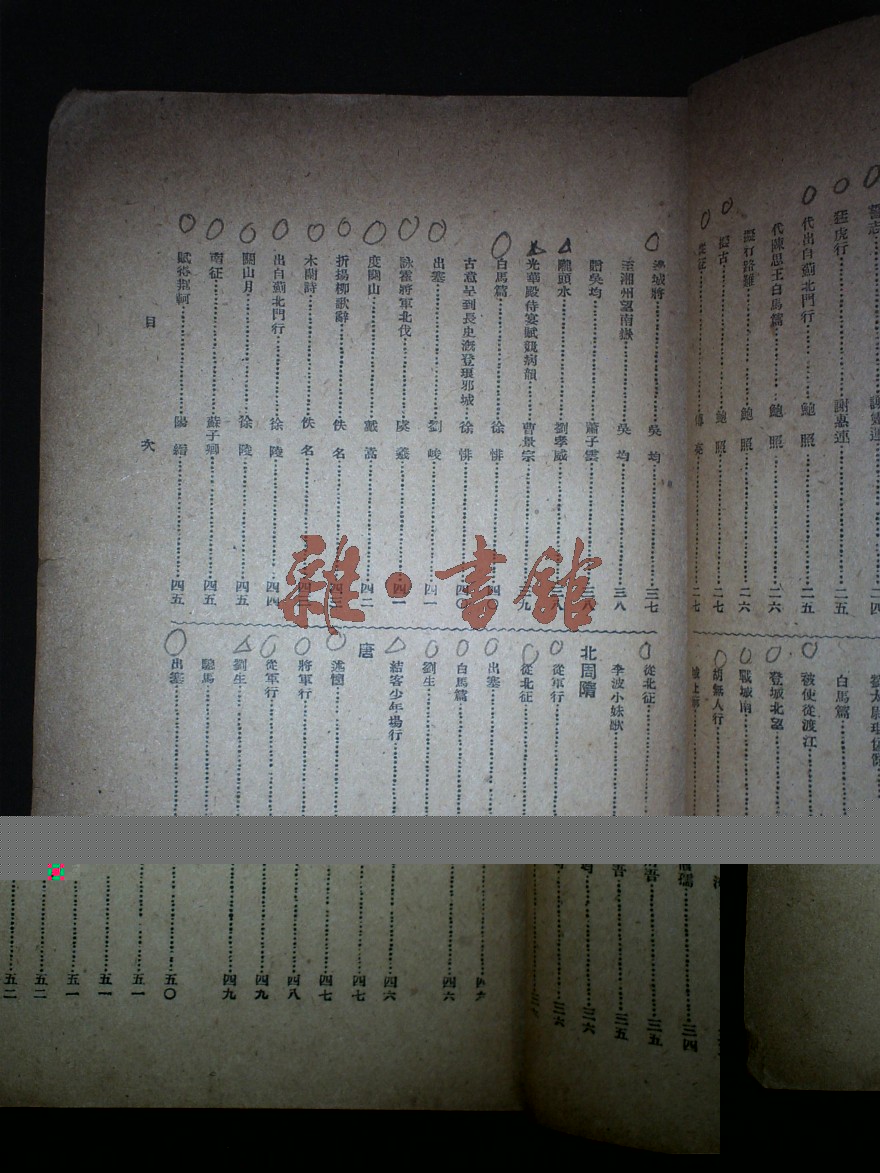 謝惠連……二四
猛虎行……謝惠連……二五
代出自薊北門行……鮑照……二五
代陳思王白馬篇……鮑照……二六
擬行路難……鮑照……二六
擬古……鮑照……二七
從征……二七
邊城將……吳均……三七
至湘州望南嶽……吳均……三八
贈吳均……蕭子雲……三八
隴頭水……劉孝威……三八
光華殿侍宴賦競病韻……曹景宗……三九
白馬篇……徐悱……四〇
古意呈到長史溉登琅邪城……徐悱……四〇
出塞……劉峻……四一
詠霍將軍北伐……虞羲……四一
度關山……戴嵩……四二
折揚柳歌辭……佚名……四三
木蘭詩……佚名……四三
出自薊北門行……徐陵……四四
關山月……徐陵……四五
南征……蘇子卿……四五
賦得荆軻……陽縉……四五
目次
雜·書館
白馬篇
被使從渡江
登城北望
戰城南
胡無人行
從北征
李波小妹歌
北周隋
從軍行
從北征
出塞
白馬篇
劉生
結客少年場行
唐
述懷
將軍行
從軍行
劉生
驄馬
出塞
三四
三五
三五
三六
三六
四六
四六
四七
四七
四八
四九
四九
五〇
五一
五一
五一
五二
五二